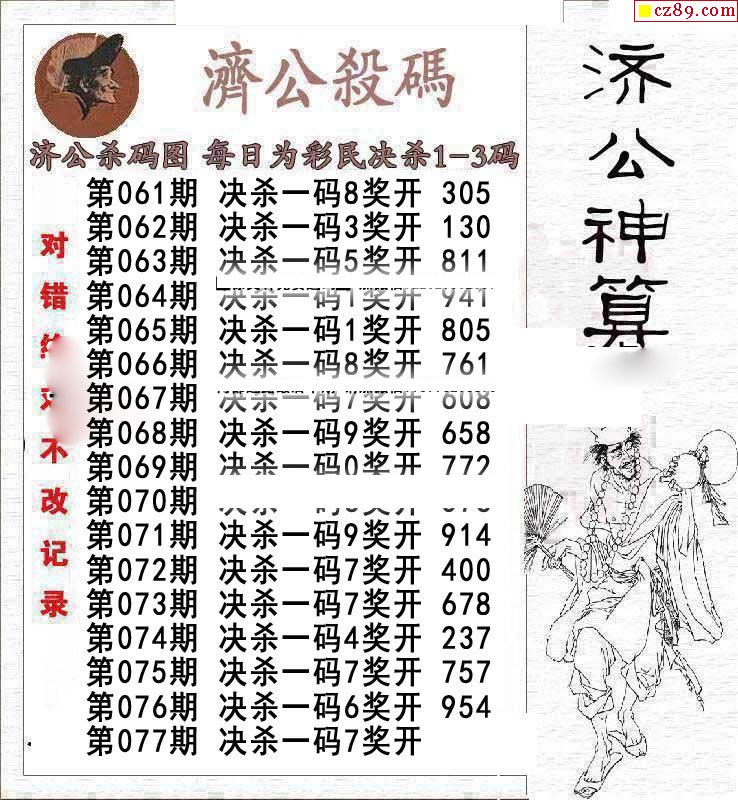 cz89.com
濟公殺碼
济公杀码图 每日为彩民决杀1-3码
第061期 决杀一码8奖开 305
第062期 决杀一码3奖开 130
第063期 决杀一码5奖开 811
第064期 决杀一码1奖开 941
第065期 决杀一码1奖开 805
第066期 决杀一码8奖开 761
第067期 决杀一码7奖开 608
第068期 决杀一码9奖开 658
第069期 决杀一码0奖开 772
第070期
第071期 决杀一码9奖开 914
第072期 决杀一码7奖开 400
第073期 决杀一码7奖开 678
第074期 决杀一码4奖开 237
第075期 决杀一码7奖开 757
第076期 决杀一码6奖开 954
第077期 决杀一码7奖开
对错不改记录
济公神算